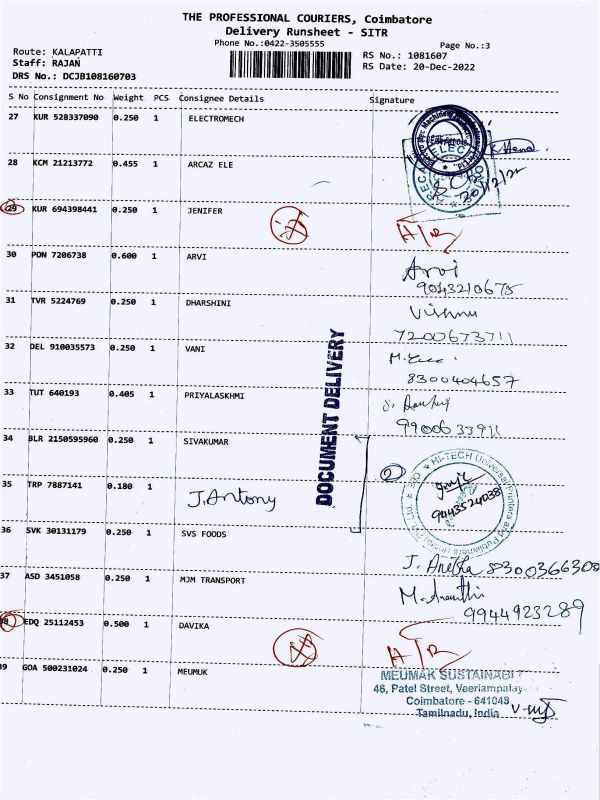 THE PROFESSIONAL COURIERS, Coimbatore
Delivery Runsheet - SITR
Phone No.:0422-3505555
Page No.:3
Route: KALAPATTI
Staff: RAJAN
DRS No.: DCJB108160703
RS No.: 1081607
RS Date: 20-Dec-2022
S No Consignment No Weight PCS Consignee Details Signature
27 KUR 528337090 0.250 1 ELECTROMECH
28 KCM 21213772 0.455 1 ARCAZ ELE
20/12/22
29 KUR 694398441 0.250 1 JENIFER
A/R
30 PON 7206738 0.600 1 ARVI
Arvi
9043210675
31 TVR 5224769 0.250 1 DHARSHINI
Vishnu
7200673711
32 DEL 910035573 0.250 1 VANI
8300404657
33 TUT 640193 0.405 1 PRIYALASKHMI
9900633911
DOCUMENT DELIVERY
34 BLR 2150595960 0.250 1 SIVAKUMAR
HI-TECH Universal Printers and Publishers
35 TRP 7887141 0.180 1 J. Antony
9443524038
36 SVK 30131179 0.250 1 SVS FOODS
J. Anetha 8300366308
37 ASD 3451058 0.250 1 MJM TRANSPORT
M. Ananthi
9944923289
38 EDQ 25112453 0.500 1 DAVIKA
A/R
39 GOA 500231024 0.250 1 MEUMUK
MEUMAK SUSTAINABI
46, Patel Street, Veeriampalay
Coimbatore - 641048
Tamilnadu, India